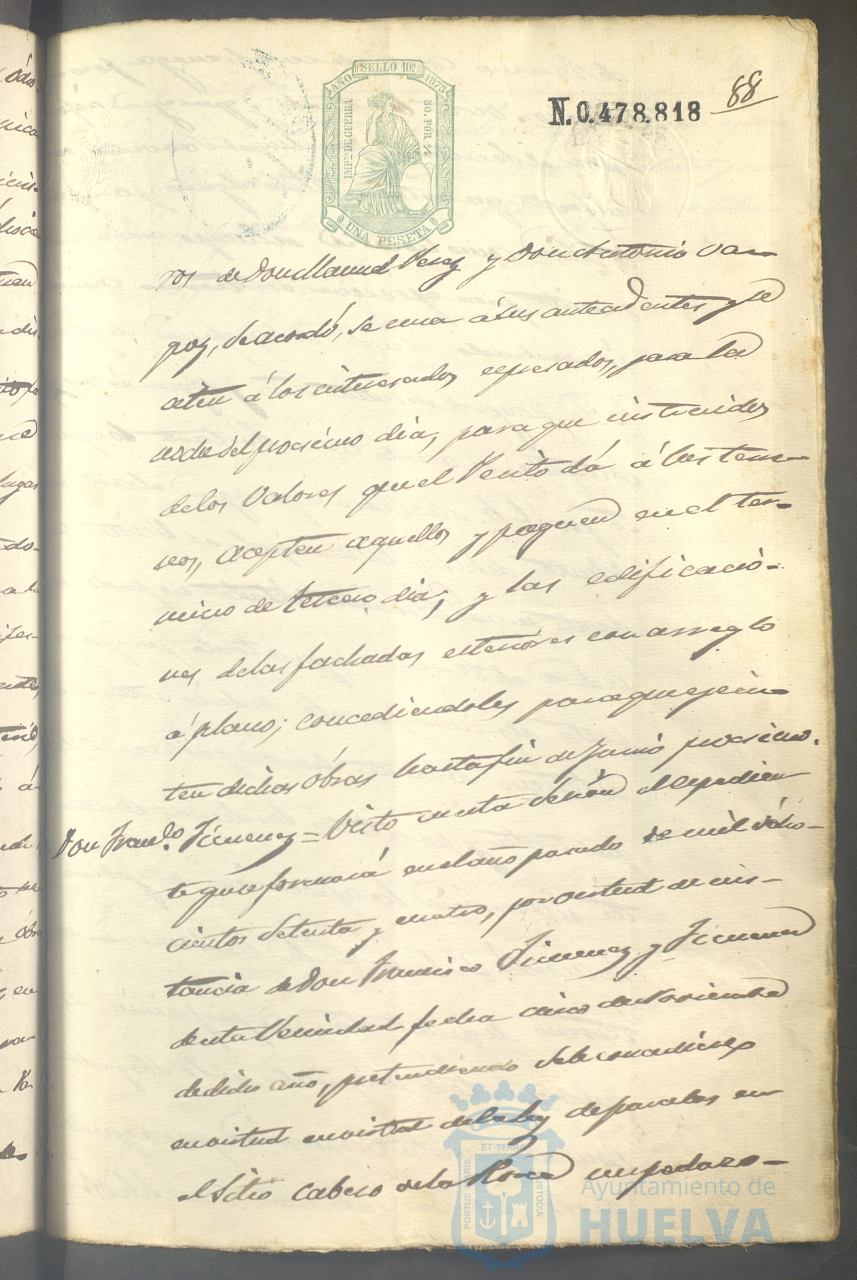 AÑO SELLO 10º 1875
IMPTO DE GUERRA
50. POR %
UNA PESETA
N.0.478.818
88
ros de Don Manuel Perez y Don Antonio Oar-
poz, se acordó, se una á sus antecedentes y se
citen á los interesados espresados, para la
del procsimo dia, para que instruidos
de los valores que el Perito dá á los terre-
nos, acepten aquellos y paguen en el ter-
mino de tercero dia; y las edificacio-
nes de las fachadas esteriores con arreglo
á plano; concediendoles para que ejecu-
ten dichas óbras hasta fin de Junio procsimo.
Don Francº. Jimenez = Visto en esta sesion el espedien
te que se formará en el año pasado de mil ócho-
cientos setenta y cuatro, por virtud de ins-
tancia de Don Francisco Jimenez y Jimenez
de esta Vecindad fecha cinco de Noviembre
de dicho año, pretendiendo se le concediese
en virtud en virtud de la ley de parcelas en
el Sitio Cabezo de la Roza un pedazo-
PORTUS MARIS ET TERRAE CUSTODIA
Ayuntamiento de
HUELVA